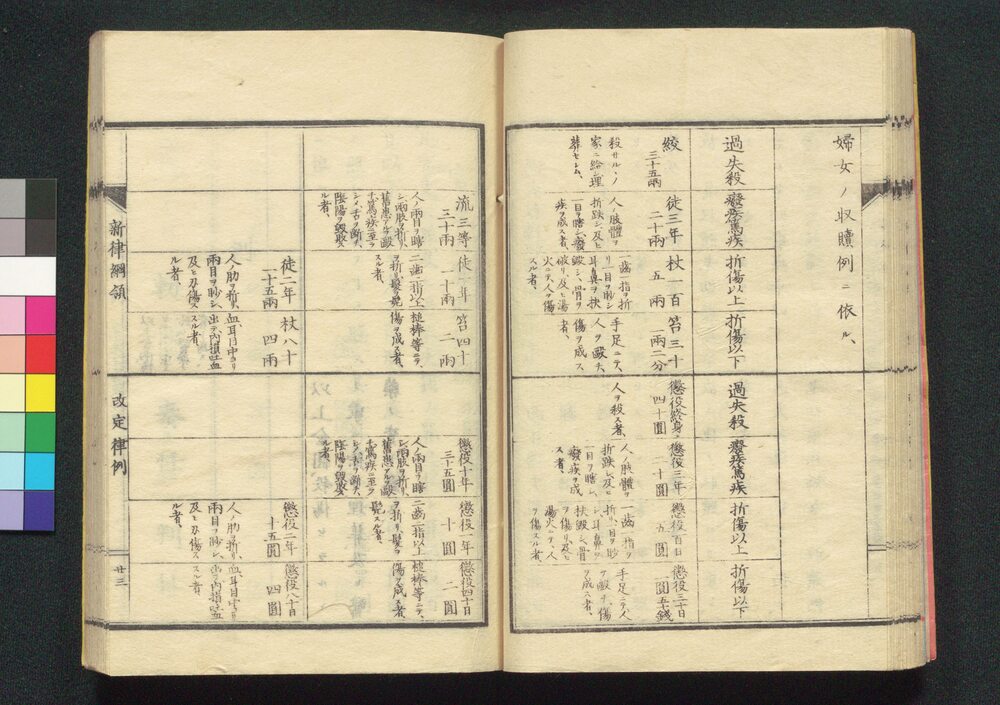 婦女ノ収贖例ニ依ル、
過失殺
癈疾篤疾
折傷以上
折傷以下
絞
三十五両
殺サルヽノ
家ニ給シ埋
葬セシム、
徒三年
二十両
人ノ肢體ヲ
折跌シ及ヒ
一目ヲ瞎シ、癈
疾ヲ成ス者、
杖一百
五両
一歯一指ヲ折
リ一目ヲ眇シ
耳鼻ヲ抉
毀シ、骨ヲ
破リ、及ヒ湯
火ニテ人ヲ傷
スル者、
笞三十
一両二分
手足ニテ、
人ヲ毆チ、
傷ヲ成ス
者、
過失殺
癈疾篤疾
折傷以上
折傷以下
懲役終身
四十圓
人ヲ殺ス者、
懲役三年
二十圓
人ノ肢體ヲ
折跌シ及ヒ
一目ヲ瞎シ、
癈疾ヲ成
ス者、
懲役百日
五圓
一歯一指ヲ
折リ、一目ヲ眇
シ、耳鼻ヲ
抉毀シ、骨
ヲ傷リ及ヒ
湯火ニテ人
ヲ傷スル者、
懲役三十日
一圓五十錢
手足ニテ人
ヲ毆チ、傷
ヲ成ス者、
流三等
三十両
人ノ兩目ヲ瞎
シ、兩肢ヲ折リ、
舊患アルヲ毆
チ篤疾ニ至ラ
シメ、舌ヲ断チ、
陰陽ヲ毀敗ス
ル者、
徒一年
一十両
二歯二指以上
ヲ折リ、髪ヲ髡
スル者、
笞四十
二両
槌棒等ニテ、
傷ヲ成ス者、
徒二年
一十五両
人ノ肋ヲ折リ、
兩目ヲ眇シ、
及ヒ刃傷ス
ル者、
杖八十
四両
血、耳目中ヨリ
出テ、内損吐血
スル者、
懲役十年
三十五圓
人ノ兩目ヲ瞎
シ、兩肢ヲ折リ、
舊患アルヲ毆
チ、篤疾ニ至ラ
シメ、舌ヲ断チ、
陰陽ヲ毀敗ス
ル者、
懲役一年
十圓
二歯二指以上
ヲ折リ、髪ヲ
髡スル者、
懲役四十日
二圓
槌棒等ニテ、
傷ヲ成ス者、
懲役二年
十五圓
人ノ肋ヲ折リ、
兩目ヲ眇シ、
及ヒ刃傷ス
ル者、
懲役八十日
四圓
血、耳目中ヨリ
出テ、内損吐血
スル者、
新律綱領
改定律例
廿三